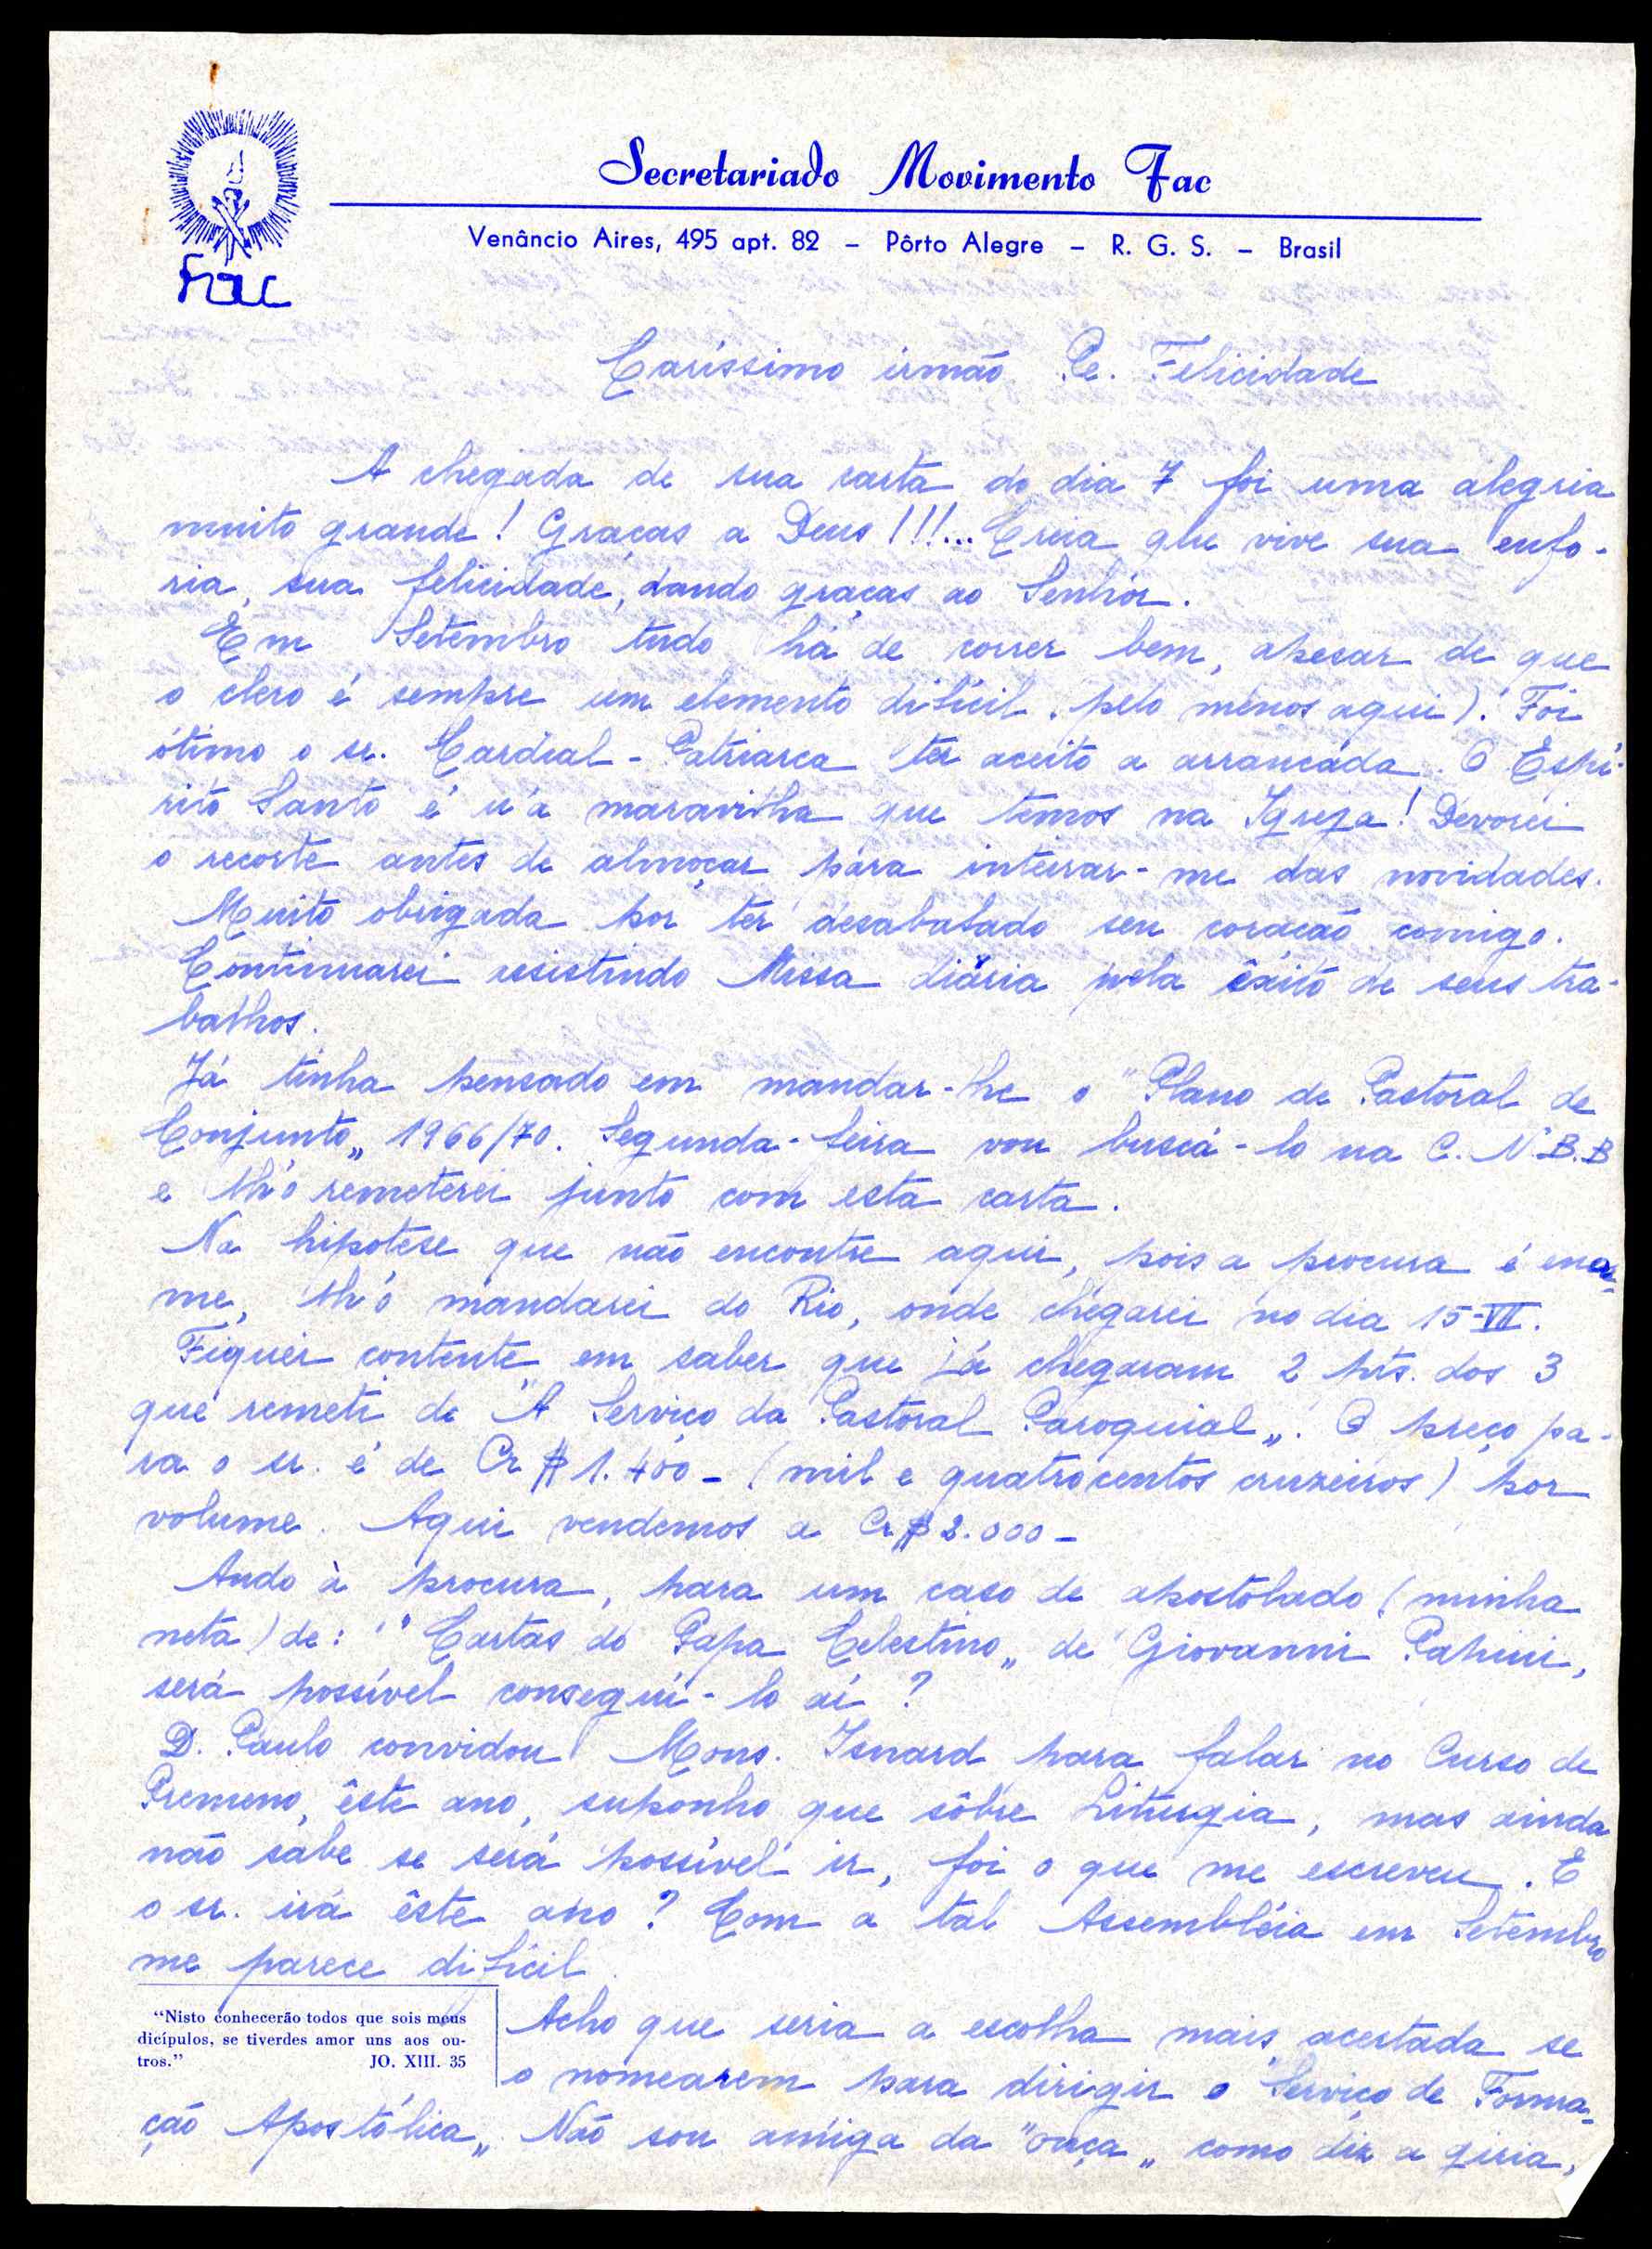 Secretariado Movimento Fac
Venâncio Aires, 495 apt. 82 – Pôrto Alegre – R. G. S. – Brasil
Fac
Caríssimo irmão Pe. Felicidade
A chegada de sua carta do dia 7 foi uma alegria
muito grande! Graças a Deus!!!... Creia que vive sua eufo-
ria, sua felicidade, dando graças ao Senhor.
Em Setembro tudo há de correr bem, apesar de que
o clero é sempre um elemento difícil (pelo menos aqui). Foi
ótimo o sr. Cardial-Patriarca ter aceito a arrancada. O Espí-
rito Santo é u'a maravilha que temos na Igreja! Devorei
o recorte antes de almoçar para inteirar-me das novidades.
Muito obrigada por ter desabafado seu coração comigo.
Continuarei assistindo Missa diária pela êxito de seus tra-
balhos.
Já tinha pensado em mandar-lhe o "Plano de Pastoral de
Conjunto„ 1966/70. Segunda-feira vou buscá-lo na C.N.B.B
e lh'o remeterei junto com esta carta.
Na hipótese que não encontre aqui, pois a procura é enor-
me, lh'o mandarei do Rio, onde chegarei no dia 15-VII.
Fiquei contente em saber que já chegaram 2 pts. dos 3
que remeti de "A Serviço da Pastoral Paroquial„. O preço pa-
ra o sr. é de Cr$ 1.400- (mil e quatrocentos cruzeiros) por
volume. Aqui vendemos a Cr$ 2.000-
Ando à procura, para um caso de apostolado (minha
neta) de: "Cartas do Papa Celestino„ de Giovanni Papini,
será possível conseguí-lo aí?
D. Paulo convidou Mons. Isnard para falar no Curso de
Premeno, êste ano, suponho que sôbre Liturgia, mas ainda
não sabe se será possível ir, foi o que me escreveu. E
o sr. irá êste ano? Com a tal Assembléia em Setembro
me parece difícil.
"Nisto conhecerão todos que sois meus
dicípulos, se tiverdes amor uns aos ou-
tros." JO. XIII. 35
Acho que seria a escolha mais acertada se
o nomearem para dirigir o "Serviço de Forma-
ção Apostólica„. Não sou amiga da "onça„ como diz a giria,